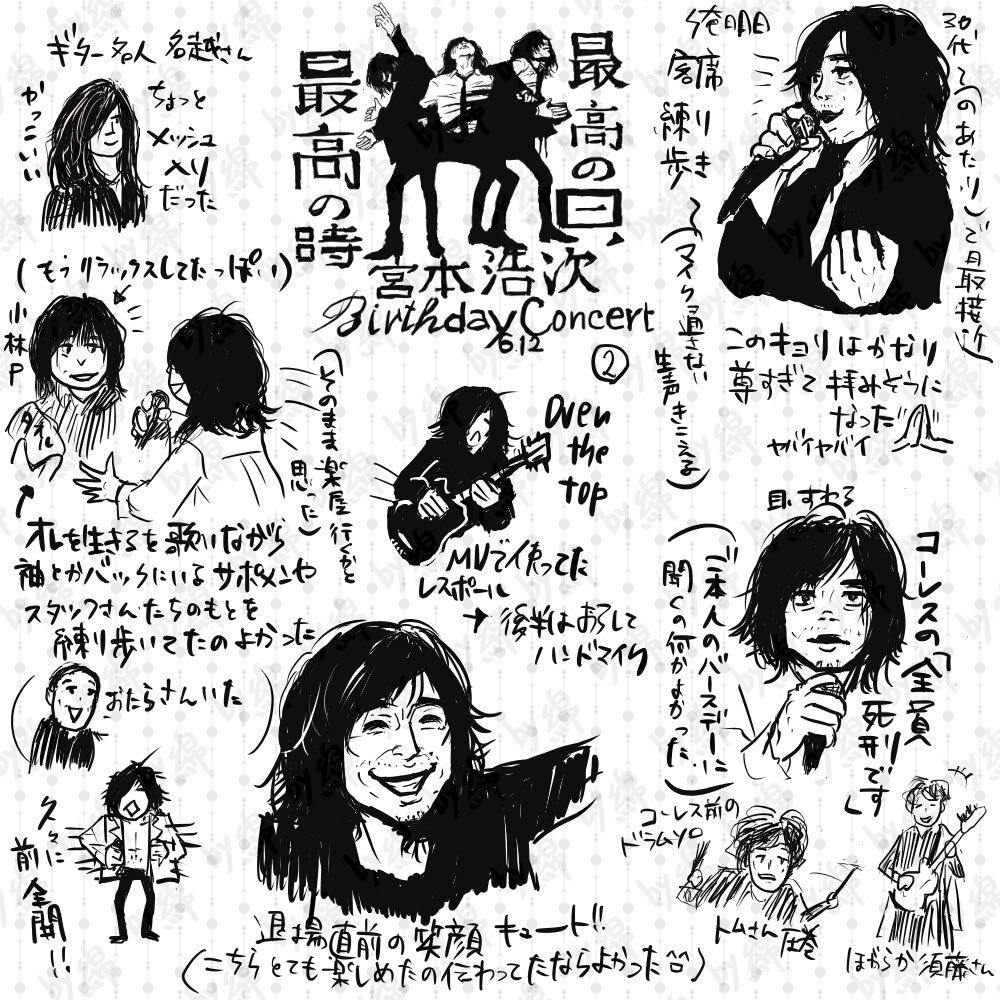 ギター名人 名越さん
かっこいい
ちょっと
メッシュ
入り
だった
最高の時
最高の日、
宮本浩次
Birthday Concert
6.12
②
俺明日
宴席
練り
歩き
(マイク通さない
生声きこえる)
30代(このあたり)で最接近
このキョリはかなり
尊すぎて拝みそうに
なった
ヤバイヤバイ
(もうリラックスしてたっぽい)
小林P
タオル
(そのまま楽屋行くかと
思った)
オレを生きるを歌いながら
袖とかバックにいるサポメンや
スタッフさんたちのもとを
練り歩いてたのよかった
Over
the
top
MVで使ってた
レスポール
→後半はおろして
ハンドマイク
耳すわる
コーレスの「全員
死刑です」
(ご本人のバースデーに
聞くの何かよかった)
(おたらさんいた)
久々に
前全開!!
退場直前の笑顔 キュート!!
(こちらとても楽しめたの伝わってたならよかった)
コーレス前の
ドラムソロ
トムさん圧巻
ほがらか須藤さん